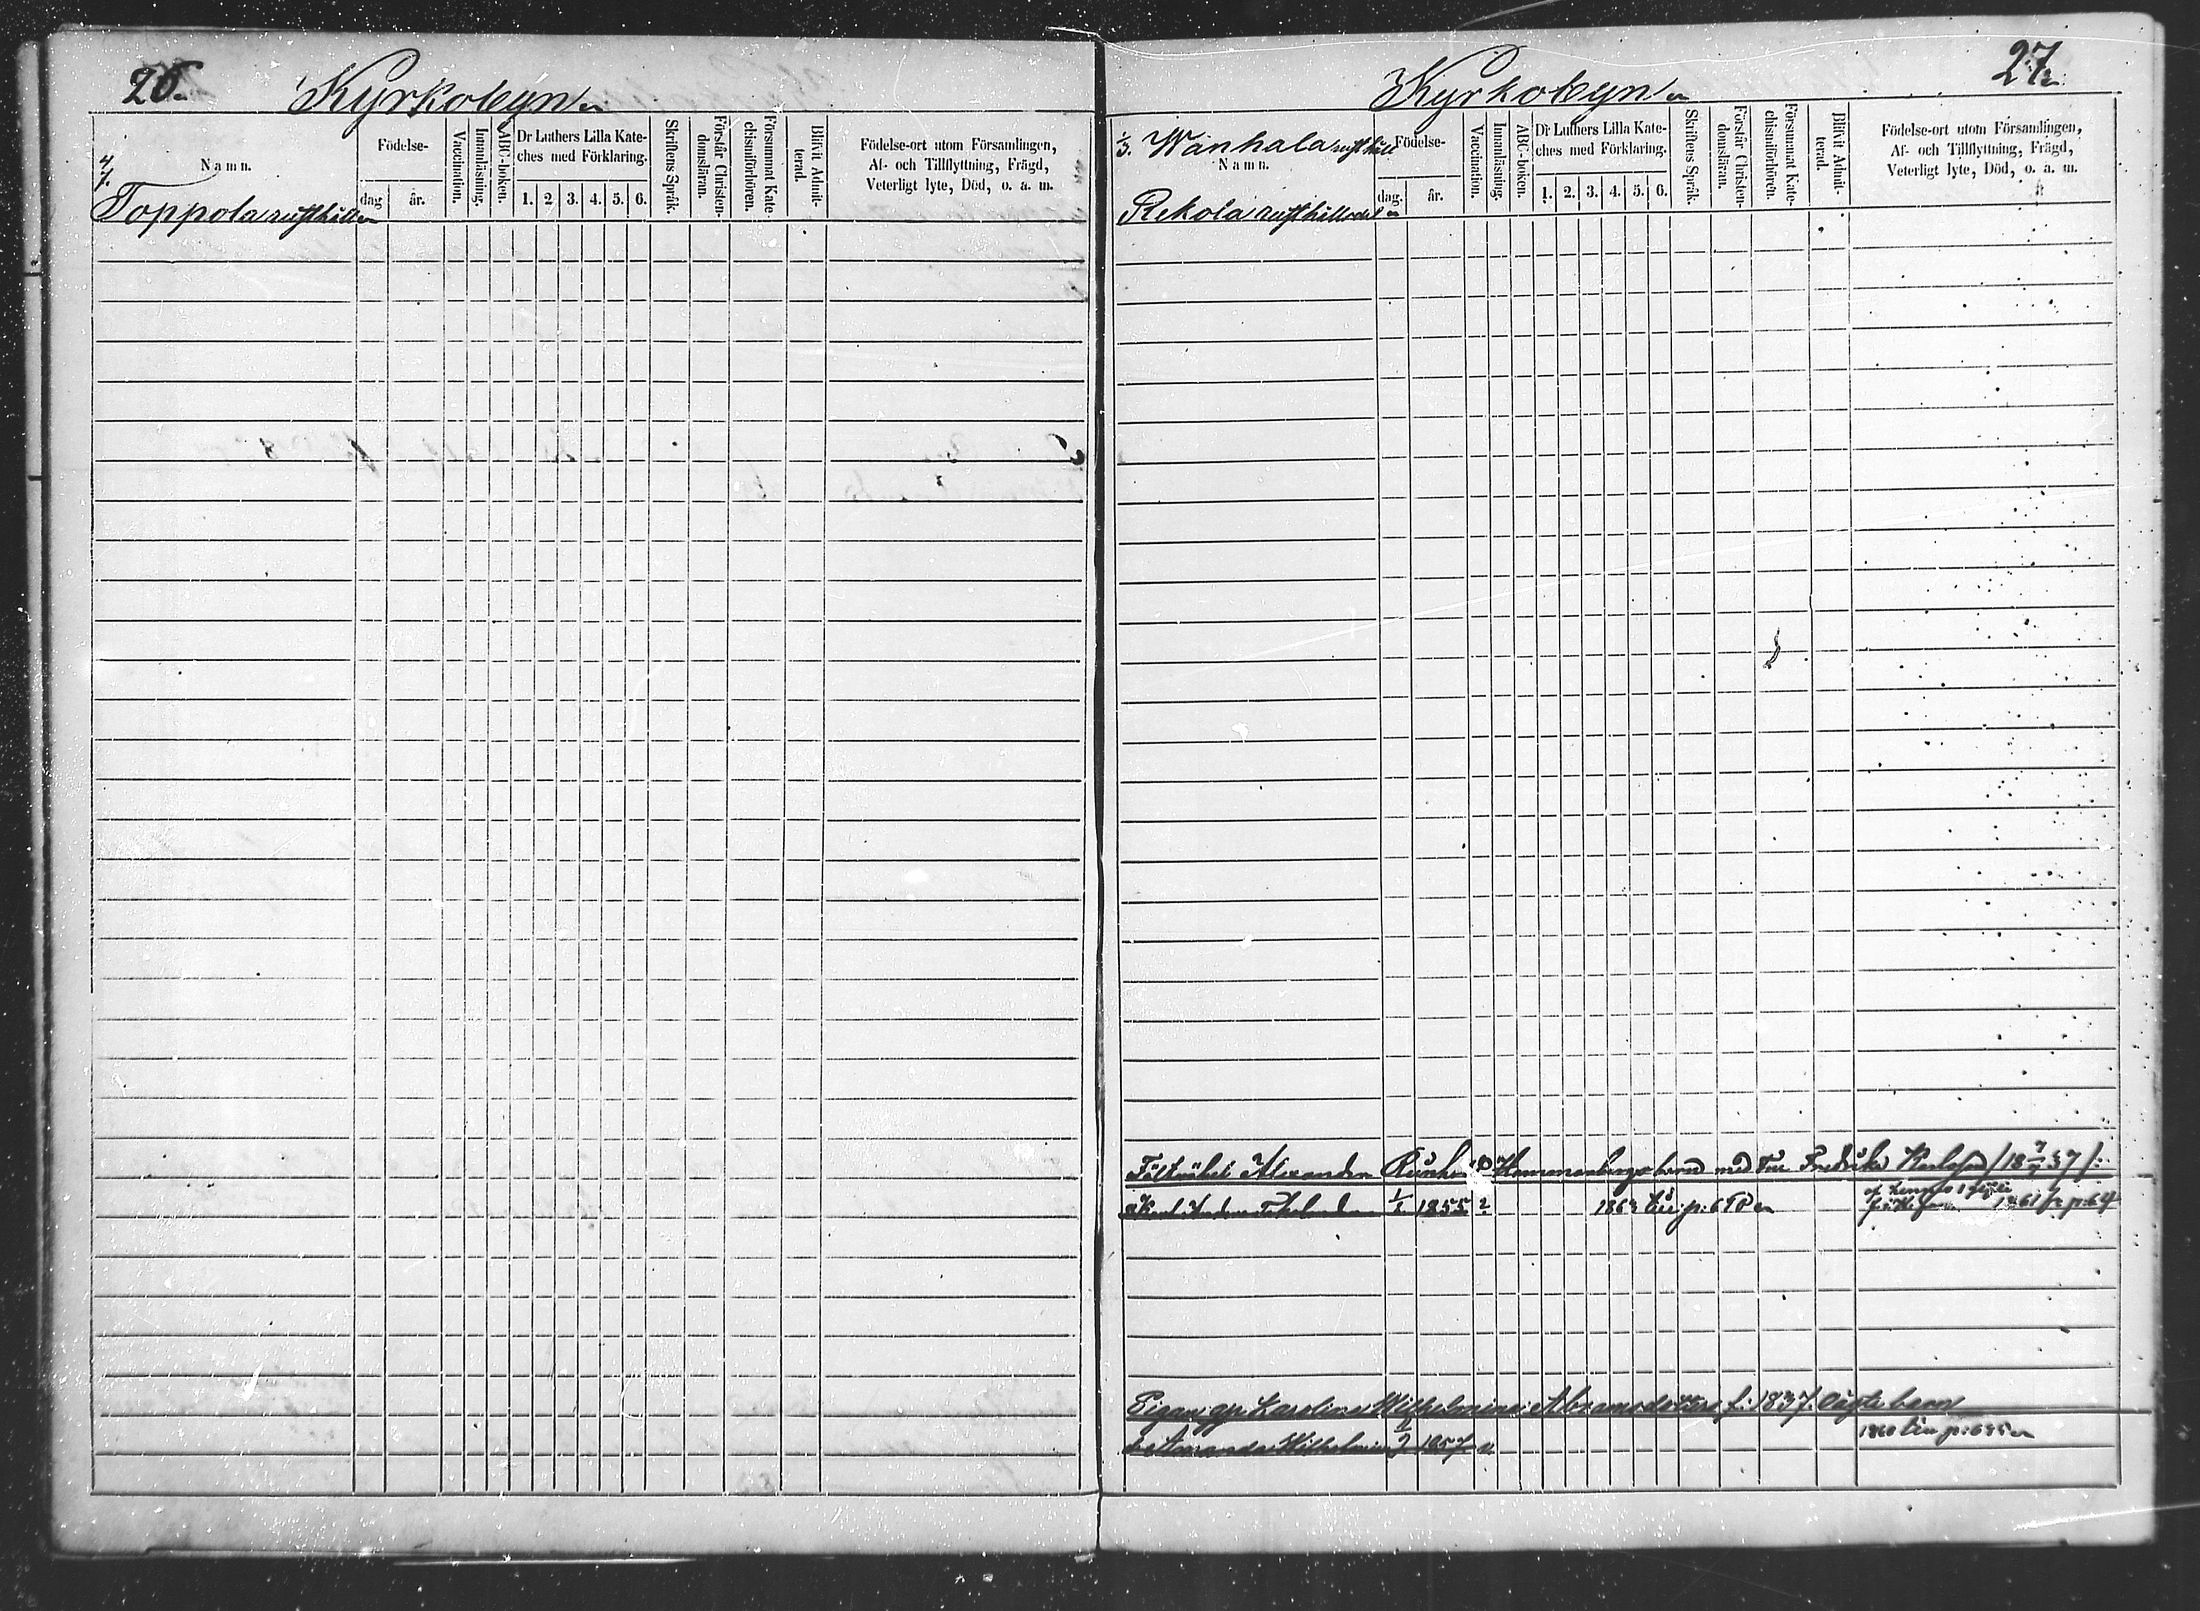 26.
Kyrkobyn
4/7.
Namn.
Födelse-
dag
år.
Vaccination.
Innanläsning.
ABC-boken.
Dr Luthers Lilla Kate-
ches med Förklaring.
1. 2 3. 4. 5. 6.
Skriftens Språk.
Förstår Christen-
domsläran.
Försummat Kate-
chismiförhören.
Blifvit Admit-
terad.
Födelse-ort utom Församlingen,
Af- och Tillflyttning, Frägd,
Veterligt lyte, Död, o. a. m.
Toppola rusthåll
27.
Kyrkobyn
1/3. Wanhala rusthåll
Namn.
Födelse-
dag.
år.
Vaccination.
Innanläsning.
ABC-boken.
Dr Luthers Lilla Kate-
ches med Förklaring.
1. 2. 3. 4. 5. 6.
Skriftens Språk.
Förstår Christen-
domsläran.
Försummat Kate-
chismiförhören.
Blifvit Admit-
terad.
Födelse-ort utom Församlingen,
Af- och Tillflyttning, Frägd,
Veterligt lyte, Död, o. a. m.
Rekola rusthållsdel
Alexander barn med
1855 1861 p. 64
Pigan Karolina Wilhelmina Abramsdotters f. 1837 oägta barn
Amanda Wilhelmina 1857
1860